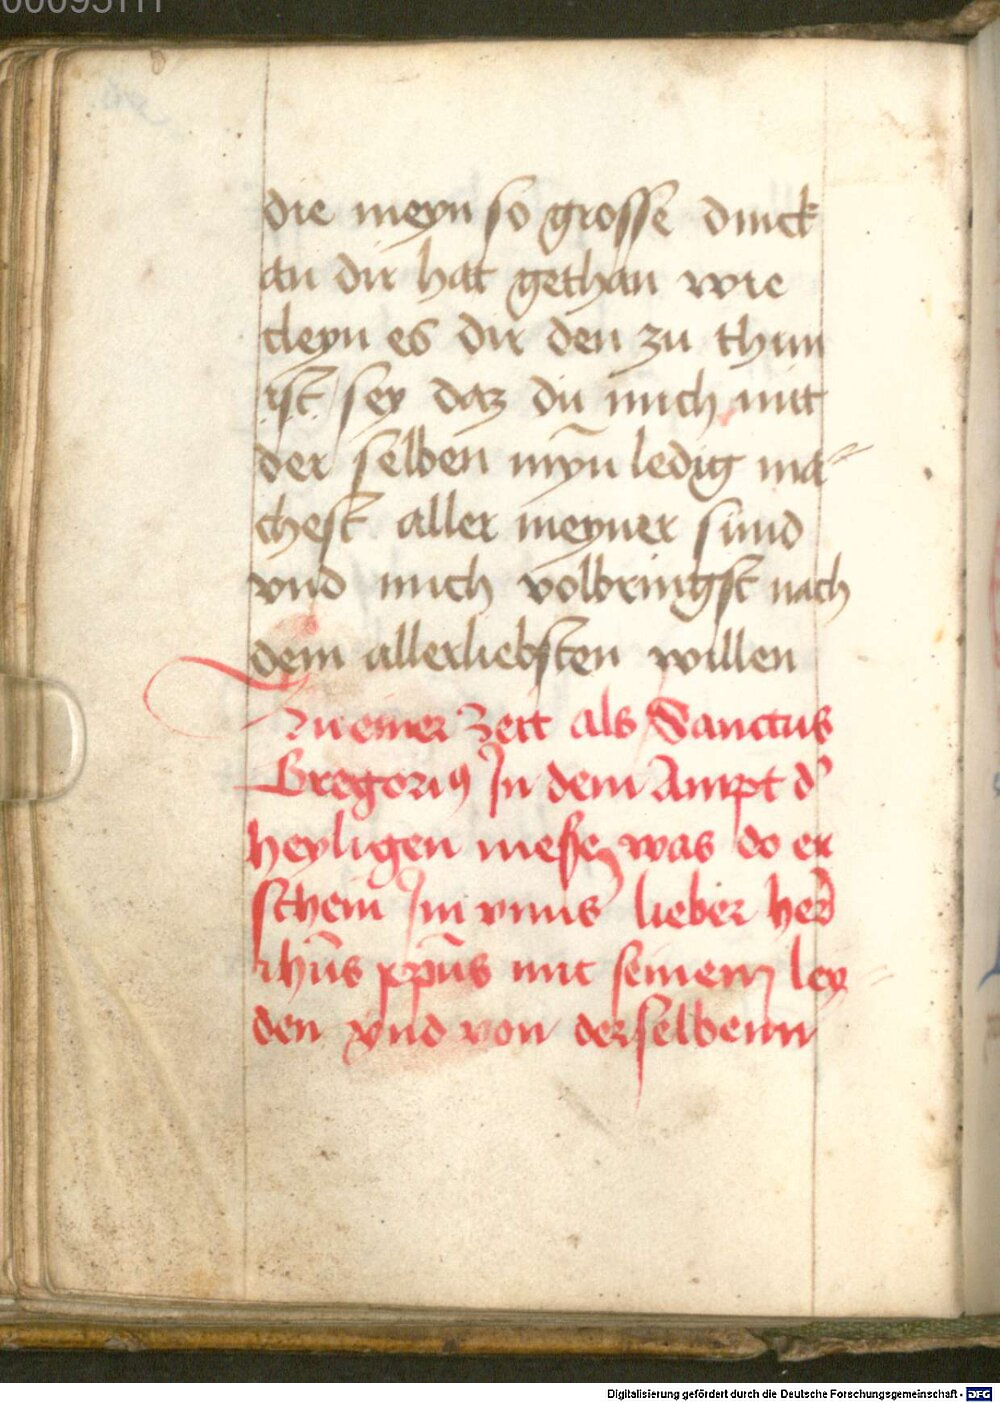 die meyn so grosse dinck
an dir hat gethan wie
cleyn es dir den zu thun
ist sey daz du mich mit
der selben myn ledig ma
chest aller meyner sund
vnd mich volbringst nach
dem allerliebsten willen
Zu einer zeit als Sanctus
Gregoriꝰ In dem Ampt d'
heyligen messe was do er
schein Im vnns' lieber her
ihūs xp̄us mit seinem ley
den vnd von derselbenn
Digitalisierung gefördert durch die Deutsche Forschungsgemeinschaft - DFG